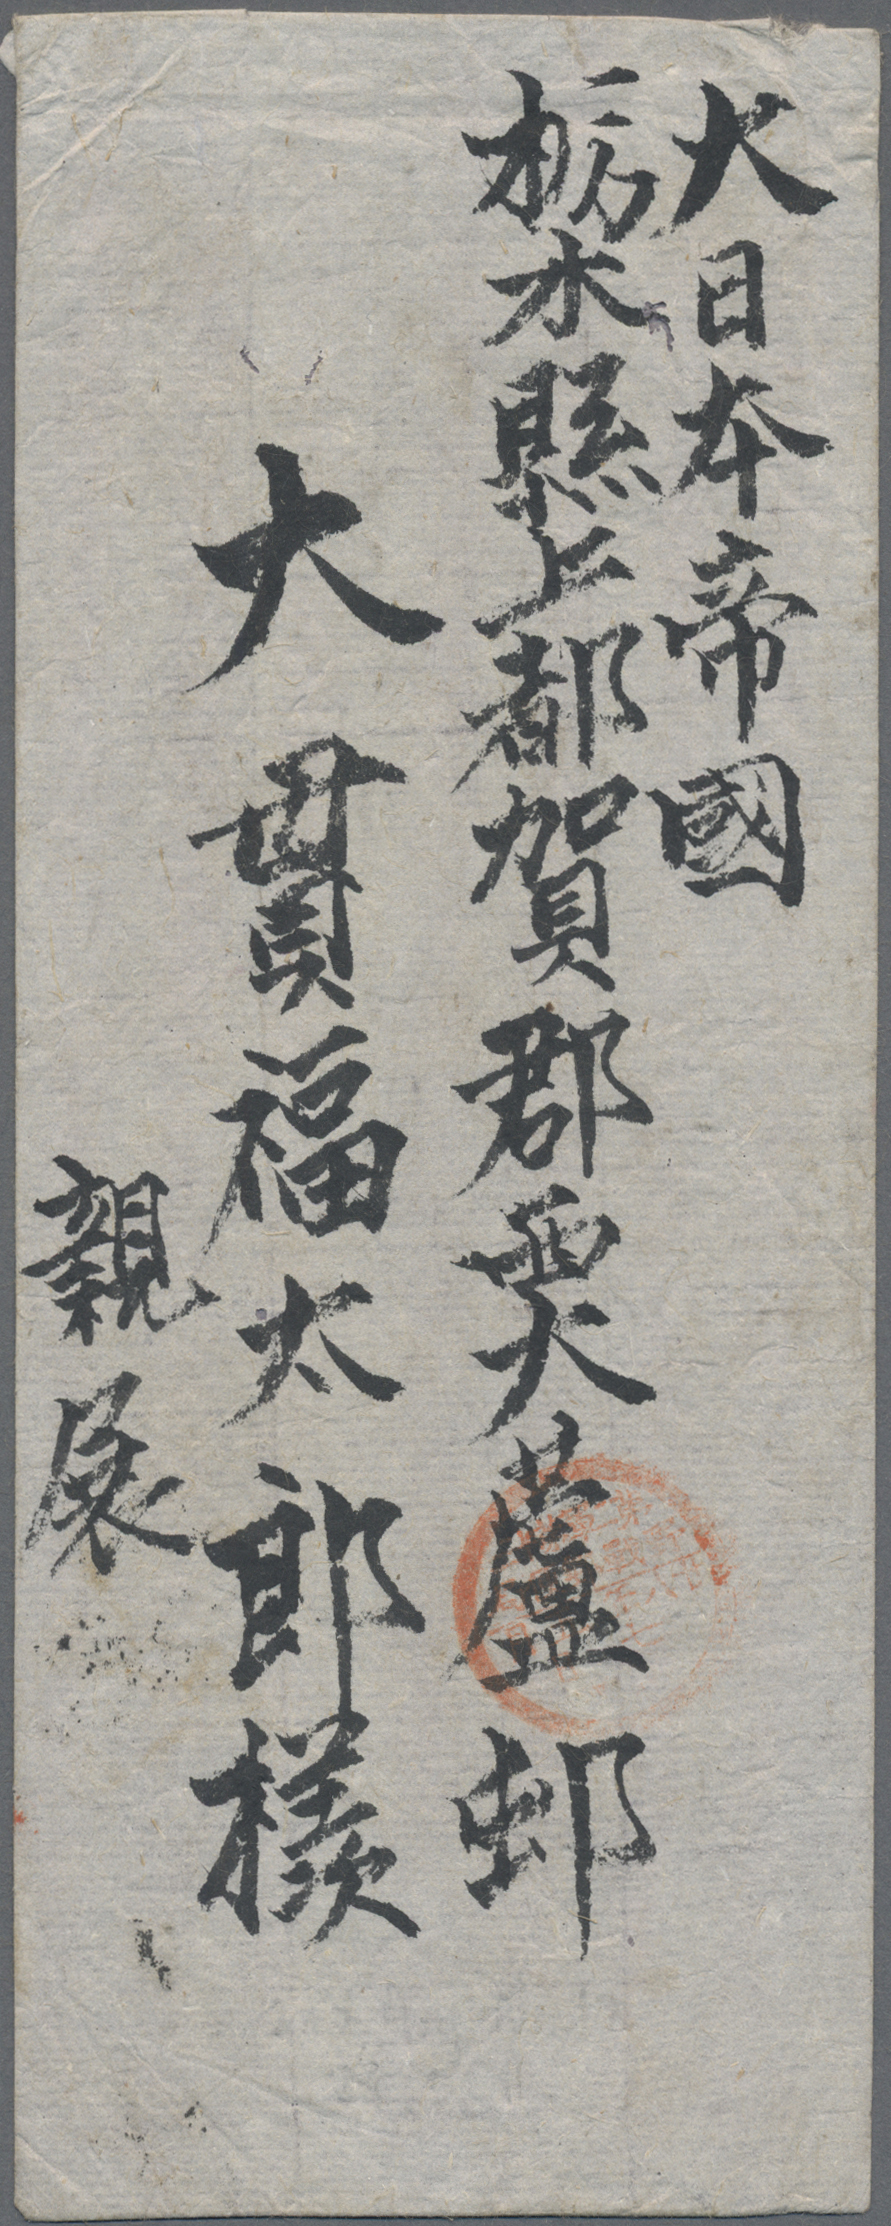 大日本帝國
栃木縣上都賀郡西大蘆邨
大貫福太郎樣
親展